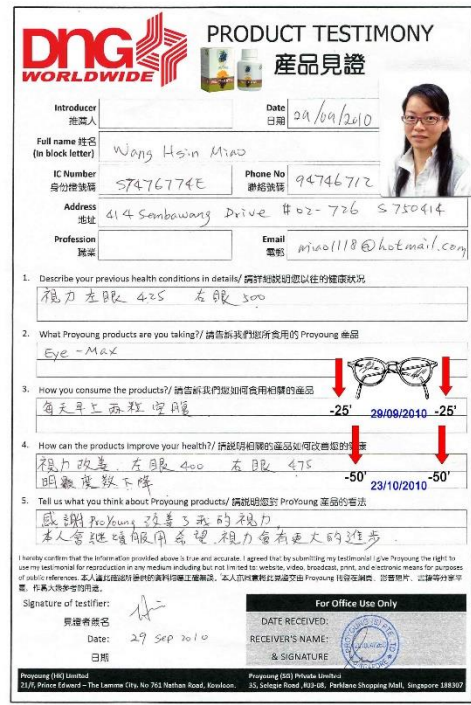 DNG
WORLDWIDE
PRODUCT TESTIMONY
產品見證
Introducer
推薦人
Date
日期
29/09/2010
Full name 姓名
(In block letter)
Wang Hsin Miao
IC Number
身份證號碼
S7476774E
Phone No
聯絡號碼
94746712
Address
地址
414 Sembawang Drive #02-726 S750414
Profession
職業
Email
電郵
miao1118@hotmail.com
1. Describe your previous health conditions in details/ 請詳細説明您以往的健康狀况
視力 左眼 425 右眼 500
2. What Proyoung products are you taking?/ 請告訴我們您所食用的 Proyoung 產品
Eye-Max
3. How you consume the products?/ 請告訴我們您如何食用相關的產品
每天早上兩粒空腹
-25' 29/09/2010 -25'
4. How can the products improve your health?/ 請説明相關的產品如何改善您的健康
視力改善. 左眼 400 右眼 475
明顯度數下降
-50' -50'
23/10/2010
5. Tell us what you think about Proyoung products/ 請説明您對 ProYoung 產品的看法
感謝 ProYoung 改善了我的視力
本人會繼續服用希望視力會有更大的進步
I hereby confirm that the information provided above is true and accurate. I agreed that by submitting my testimonial I give Proyoung the right to
use my testimonial for reproduction in any medium including but not limited to: website, video, broadcast, print, and electronic means for purposes
of public references.
Signature of testifier:
見證者簽名
Date: 29 Sep 2010
日期
For Office Use Only
DATE RECEIVED:
RECEIVER'S NAME:
& SIGNATURE
Proyoung (HK) Limited
21/F, Prince Edward – The Lamma City, No 761 Nathan Road, Kowloon.
Proyoung (SG) Private Limited
35, Selegie Road, #03-08, Parklane Shopping Mall, Singapore 188307